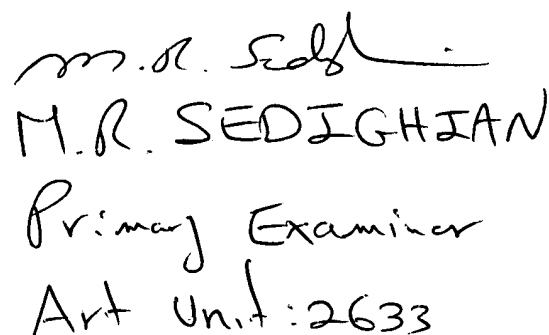 M.R. Sedghian
M.R. SEDIGHIAN
Primary Examiner
Art Unit: 2633